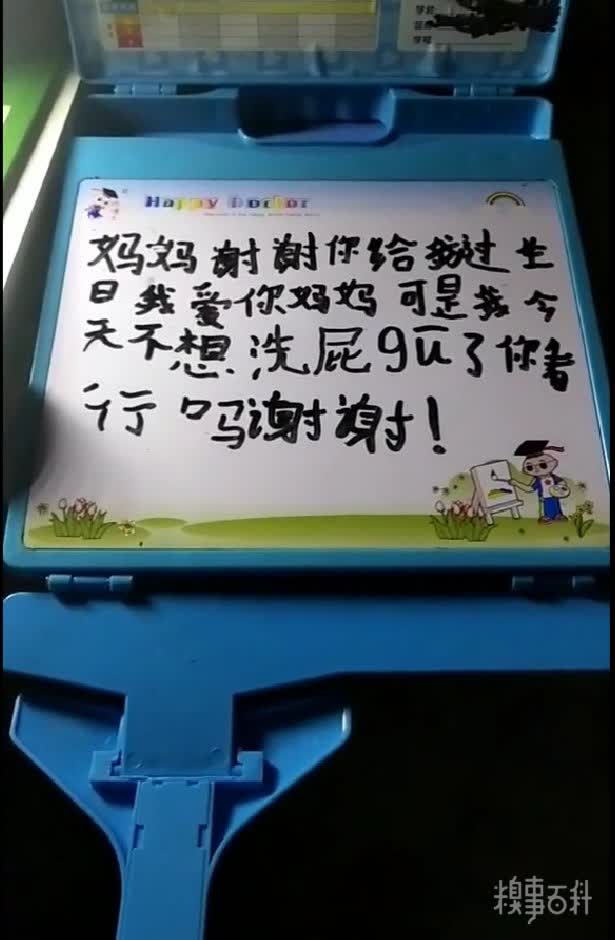 学校
学号
Happy Doctor
妈妈谢谢你给我过生
日我爱你妈妈可是我今
天不想洗屁gū了你看
行吗谢谢!
糗事百科